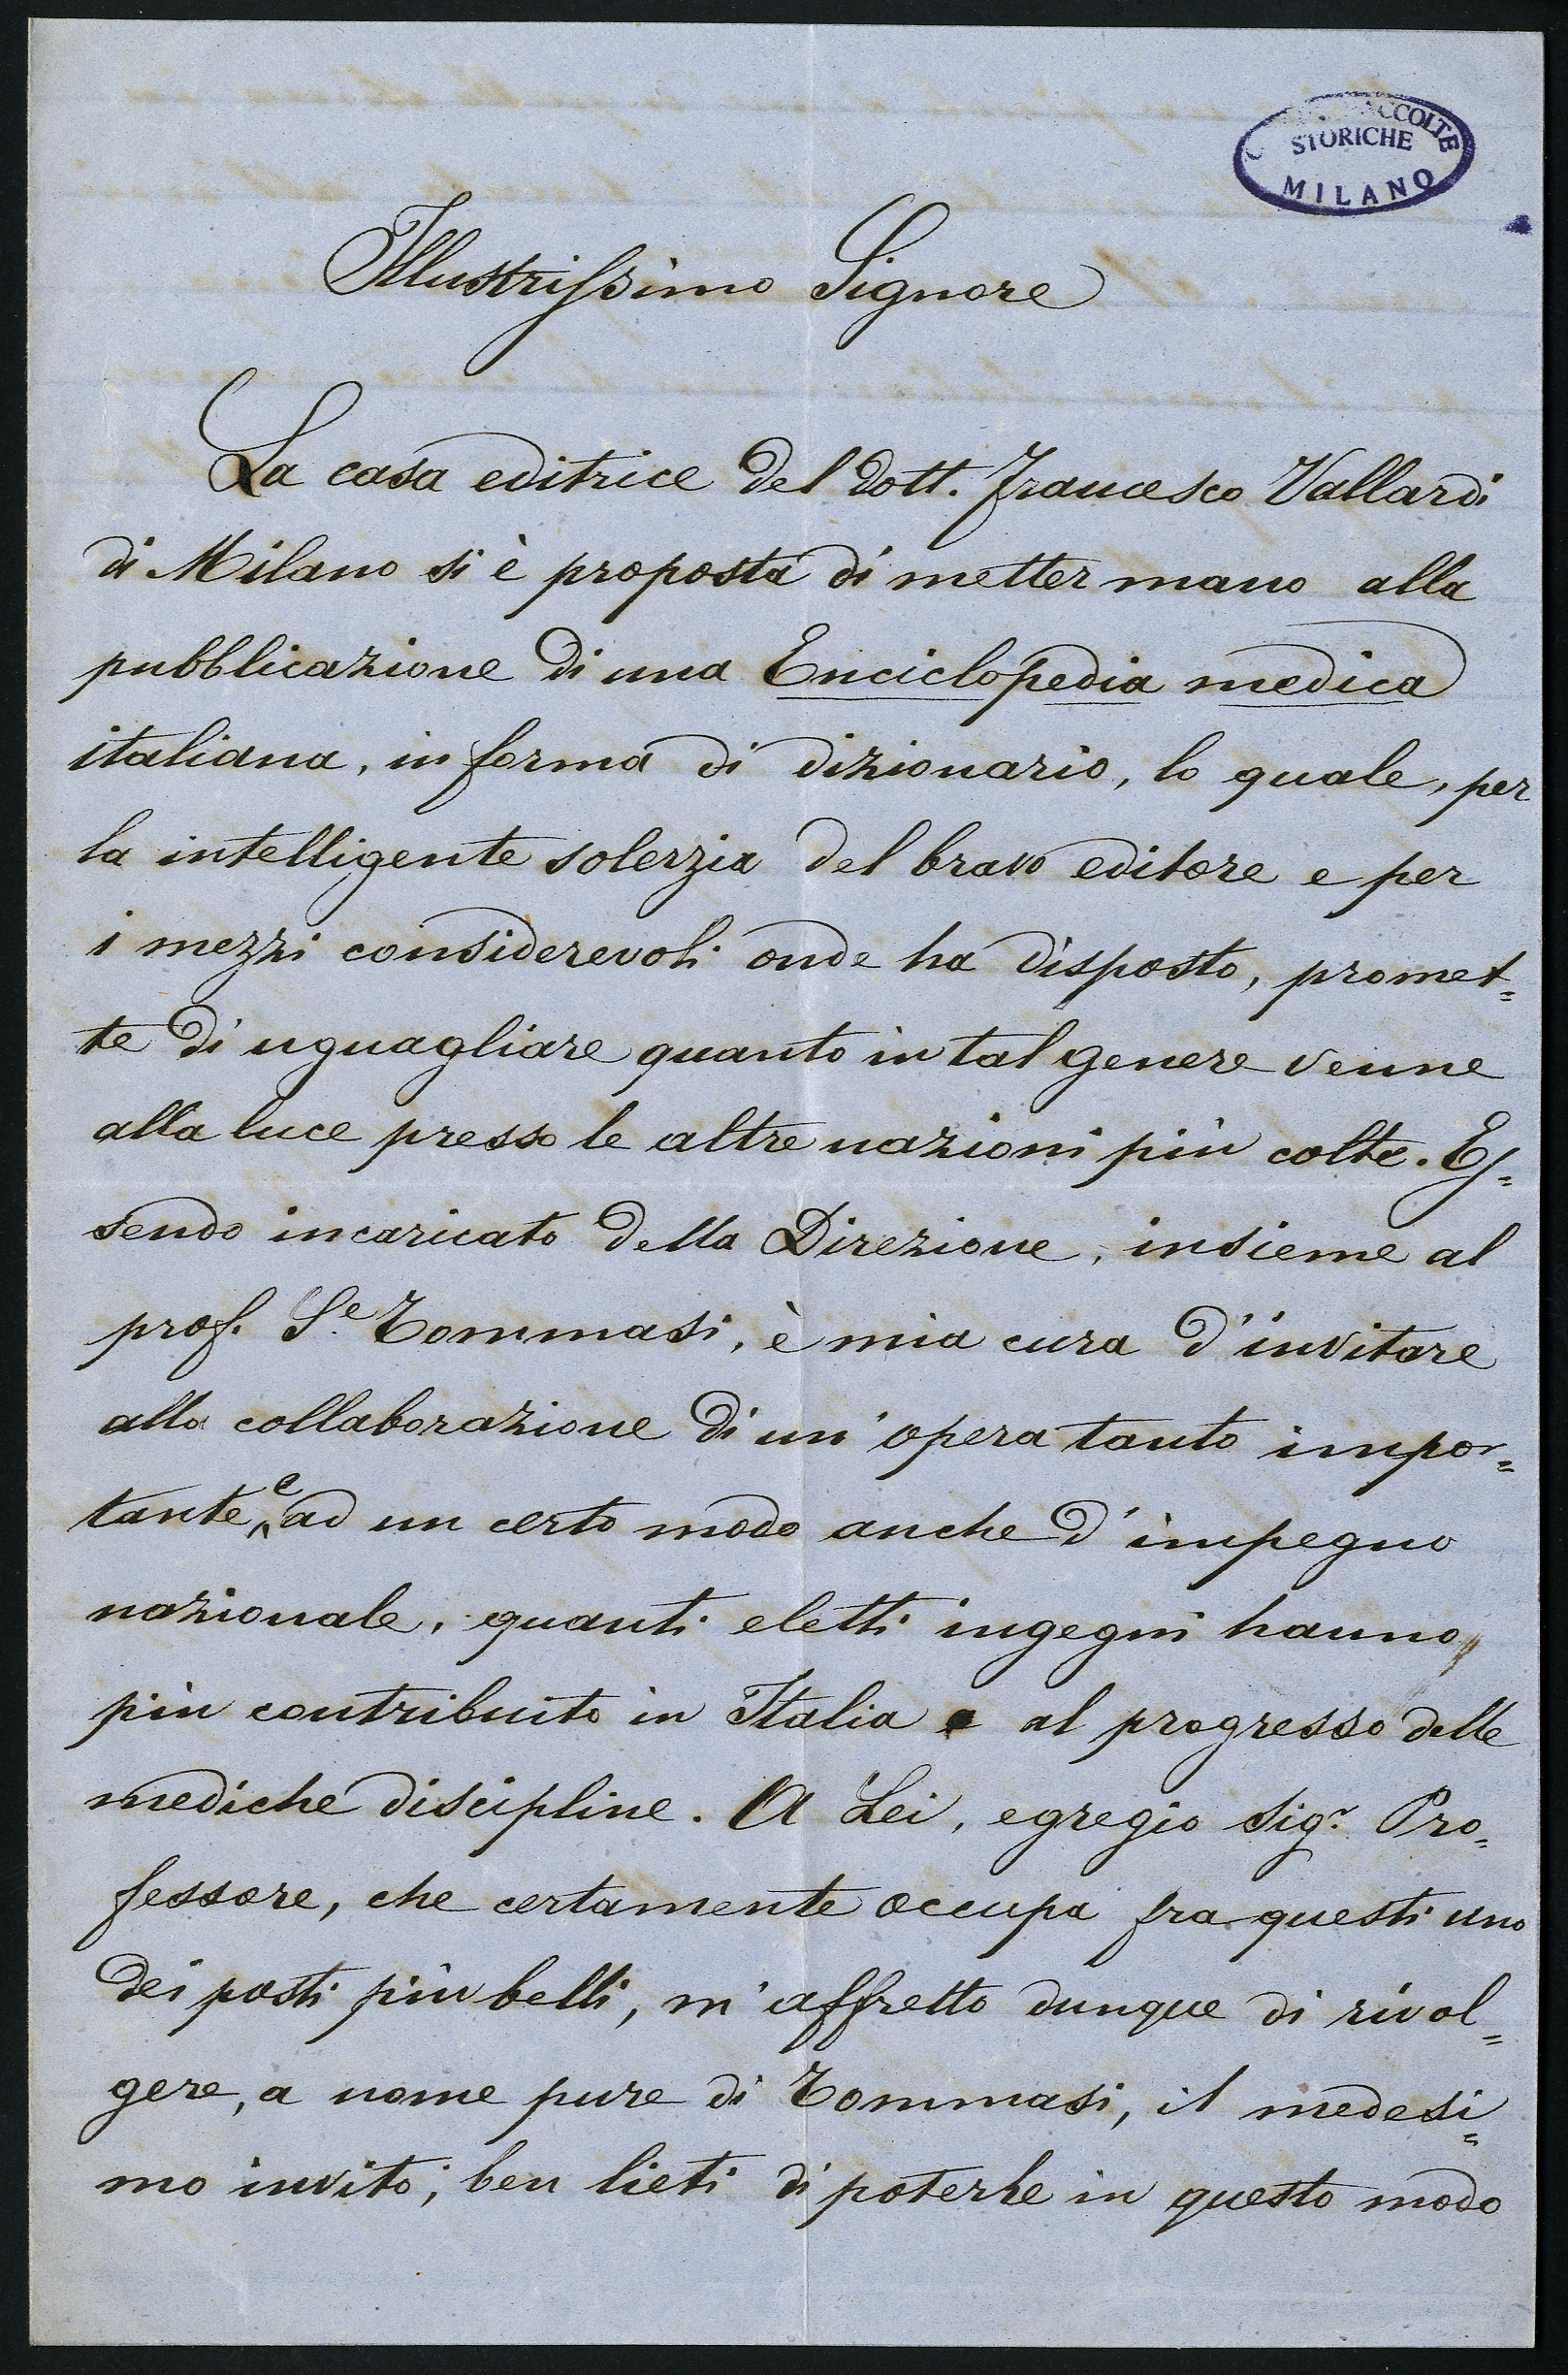 ACCOLTE
STORICHE
MILANO
Illustrissimo Signore
La casa editrice del dott. Francesco Vallardi
di Milano si è proposta di metter mano alla
pubblicazione di una Enciclopedia medica
italiana, in forma di dizionario, lo quale, per
la intelligente solerzia del bravo editore e per
i mezzi considerevoli onde ha disposto, promet=
te di uguagliare quanto in tal genere venne
alla luce presso le altre nazioni più colte. Es=
sendo incaricato della Direzione, insieme al
prof. S.e Tommasi, è mia cura d'invitare
alla collaborazione di un'opera tanto impor=
tante, e ad un certo modo anche d'impegno
nazionale, quanti eletti ingegni hanno
più contribuito in Italia al progresso delle
mediche discipline. A Lei, egregio Sig.r Pro=
fessore, che certamente occupa fra questi uno
dei posti più belli, m'affretto dunque di rivol=
gere, a nome pure di Tommasi, il medesi=
mo invito; ben lieti di poterle in questo modo